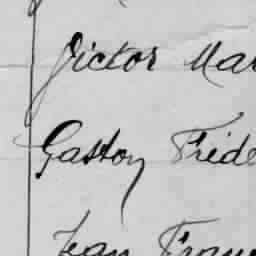 Victor Mar
Gaston Fride
Jean Fran